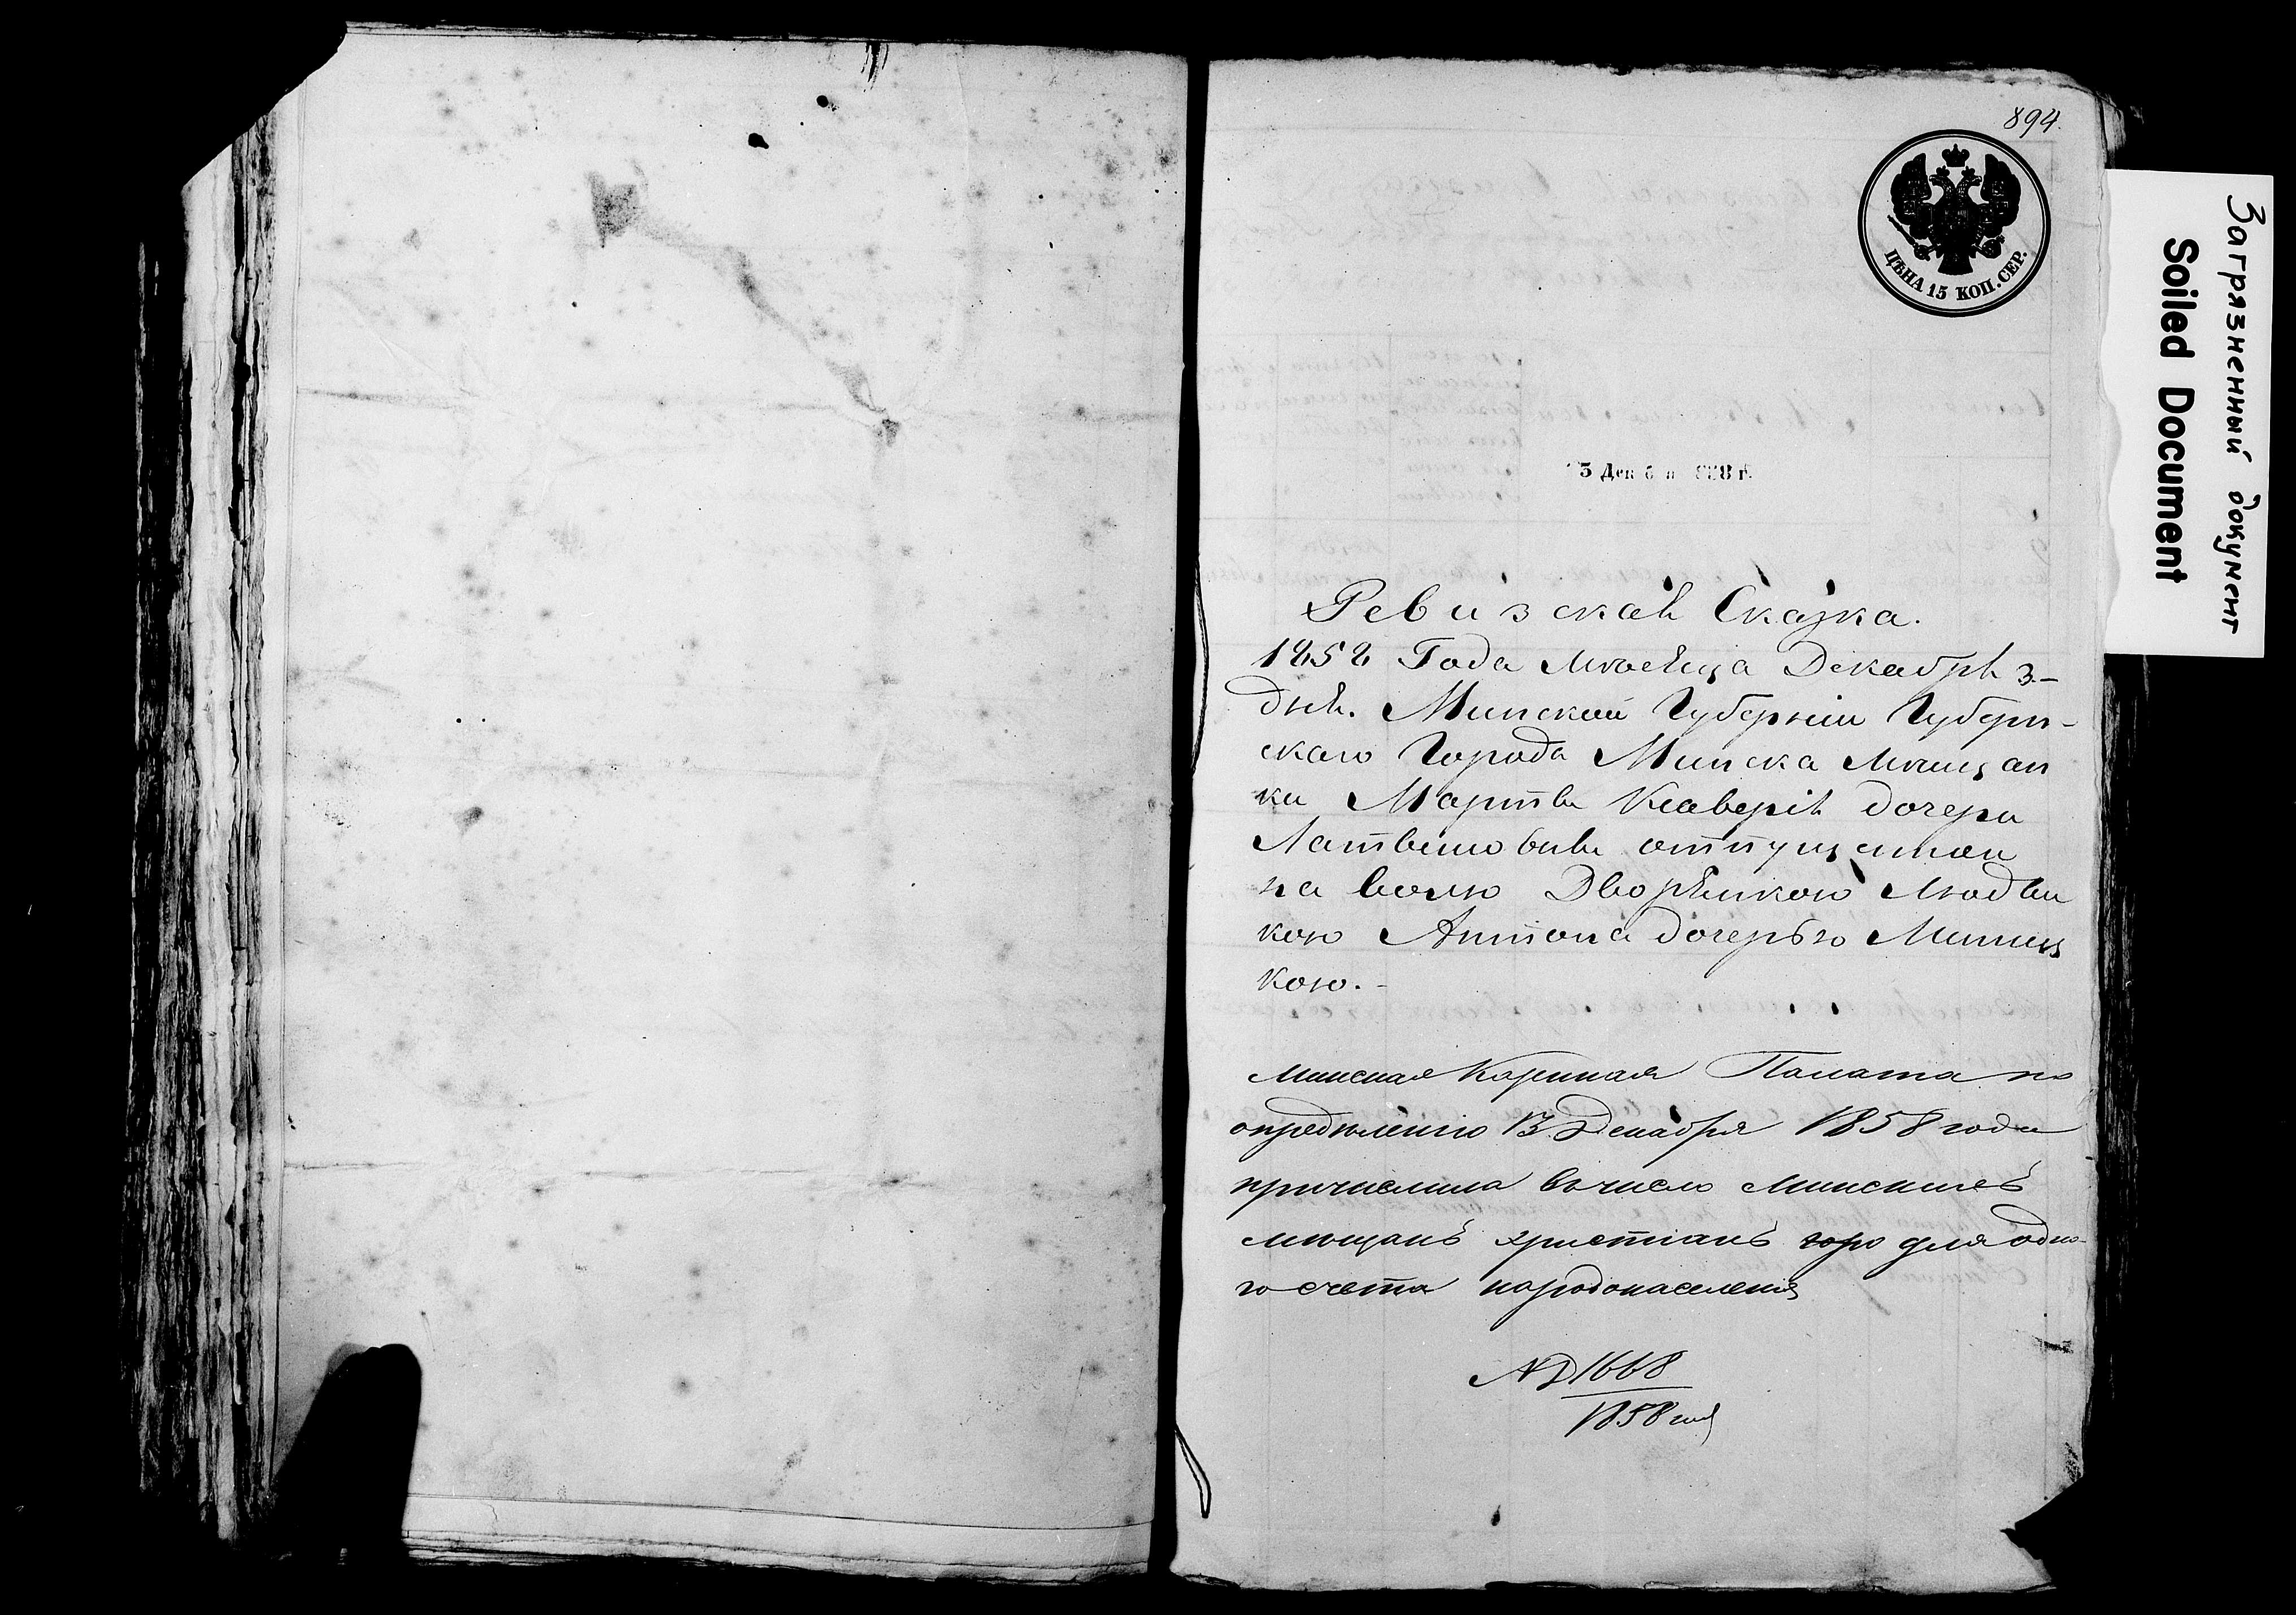 894.
ЦѢНА 15 КОП. СЕР.
Загрязненный документ
Soiled Document
Ревизская Сказка.
1858 Года Мѣсяца Декабря 3-
дня. Минской Губерніи Губерн-
скаго Города Минска Мѣщан
ки Марты Ксаверія дочери
отпущенной
на волю Дворянкою Людви
кою Антона дочерью
кою.-
Минская Казенная Палата по
опредѣленію 13 Декабря 1858 года
причислила въ число Минскихъ
мѣщанъ христіанъ для одно-
го счета народонаселенія
№ 1668
1858 год